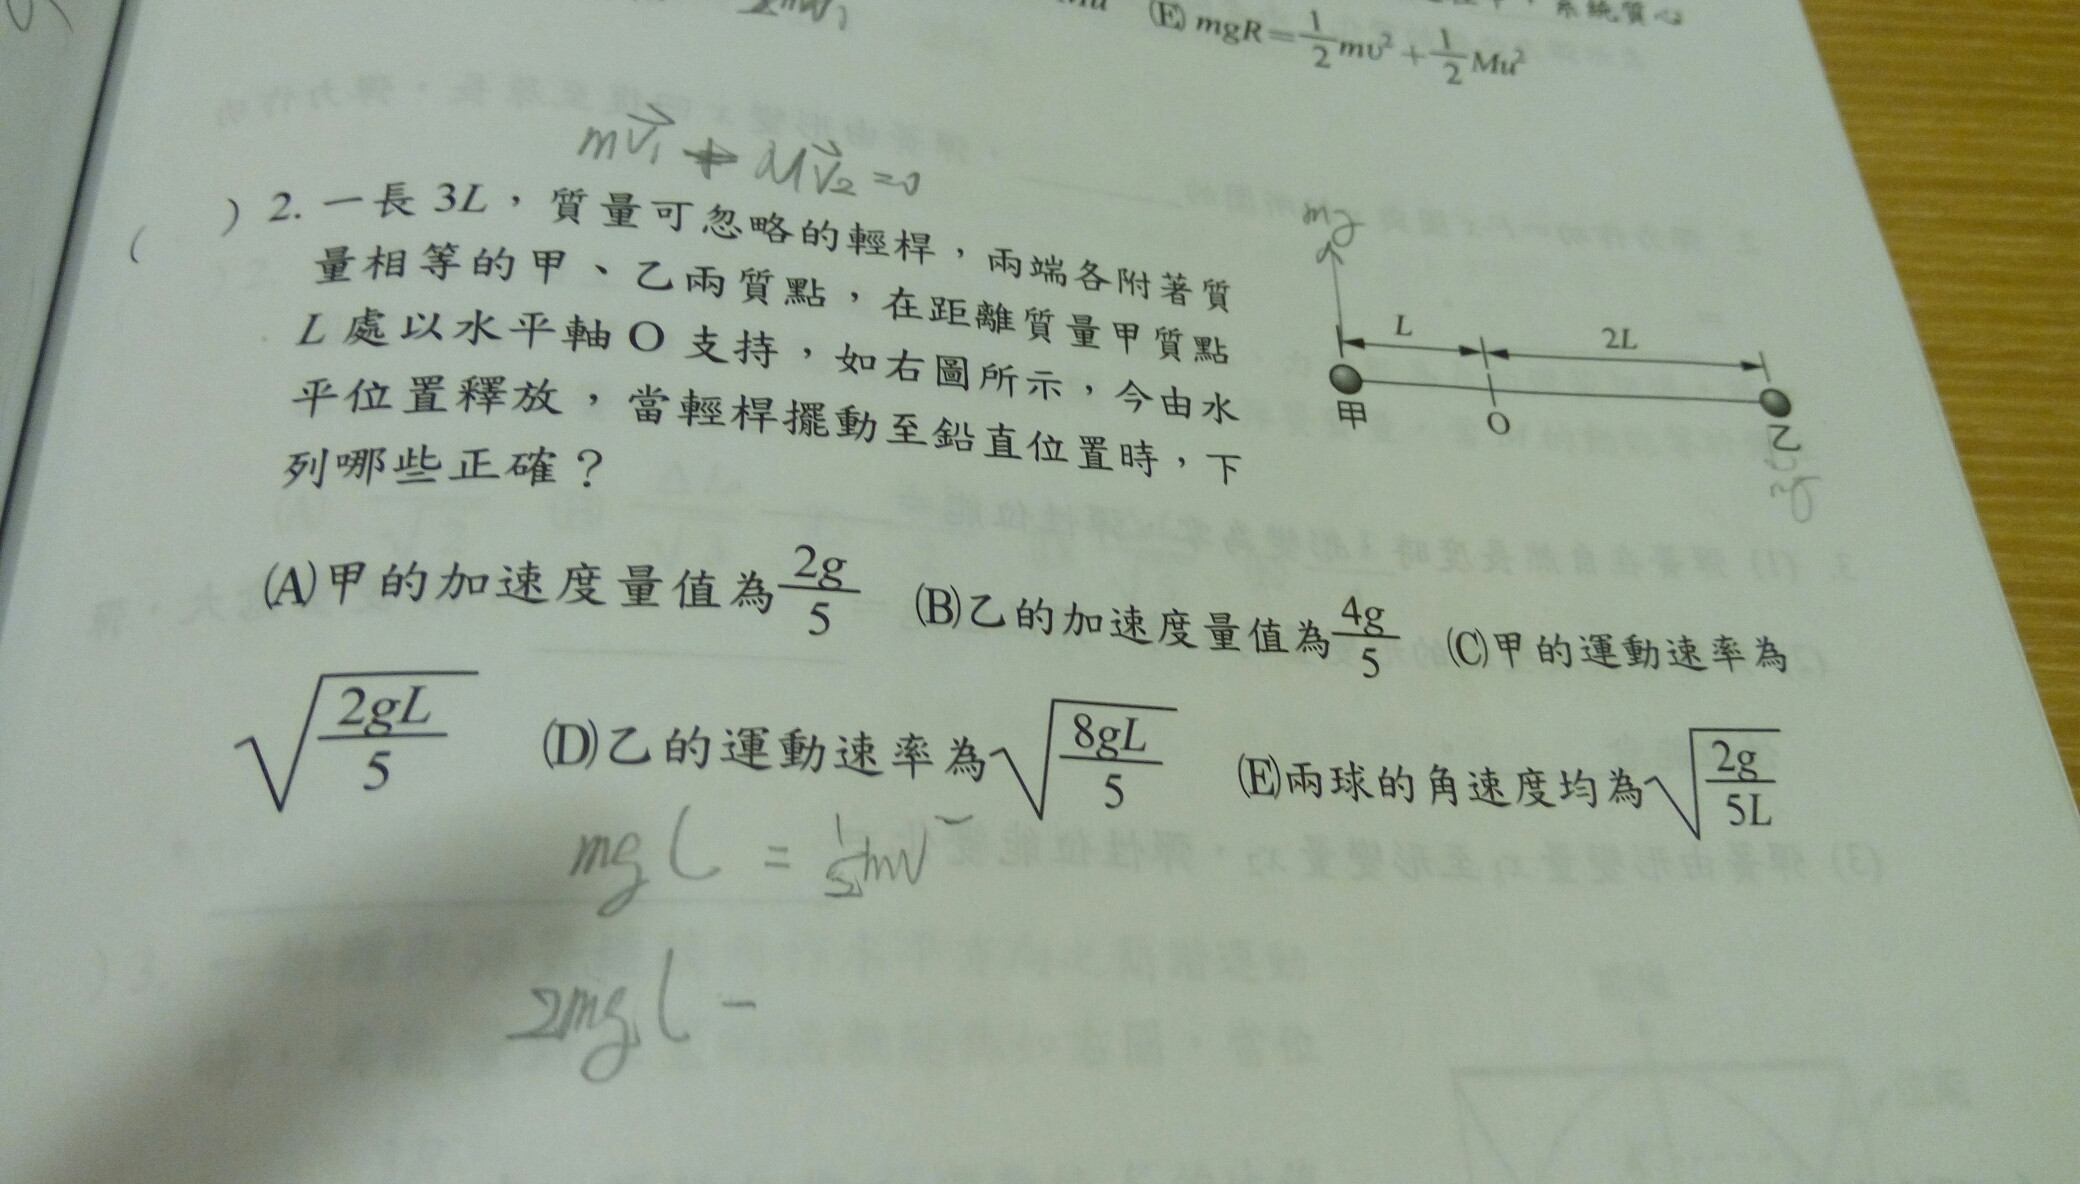 (E) mgR=1/2mv²+1/2Mu²
系統質心
mV₁ + MV₂ =0
( ) 2. 一長 3L，質量可忽略的輕桿，兩端各附著質
量相等的甲、乙兩質點，在距離質量甲質點
L 處以水平軸 O 支持，如右圖所示，今由水
平位置釋放，當輕桿擺動至鉛直位置時，下
列哪些正確？
mg
L 2L
甲 O 乙
(A)甲的加速度量值為2g/5 (B)乙的加速度量值為4g/5 (C)甲的運動速率為
√(2gL/5) (D)乙的運動速率為√(8gL/5) (E)兩球的角速度均為√(2g/5L)
mgL = 1/2mV²
2mgL -